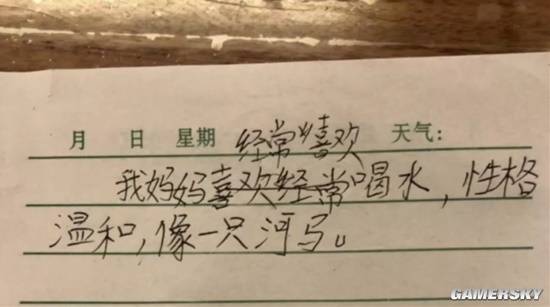 月 日 星期 天气:
经常喜欢
我妈妈喜欢经常喝水，性格
温和，像一只河马。
GAMERSKY